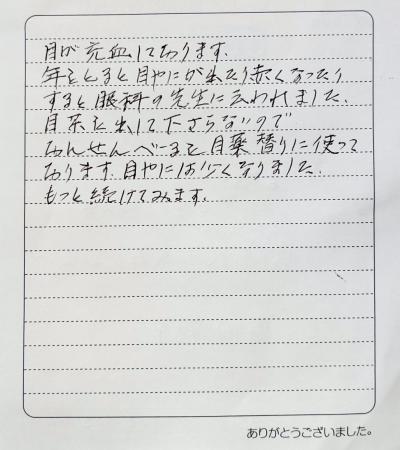 目が充血しております。
年をとると目やにが出たり赤くなったり
すると眼科の先生に云われました。
目薬を出して下さらないので
なんせんべーるを目薬替りに使って
おります。目やには少くなりました。
もっと続けてみます。
ありがとうございました。